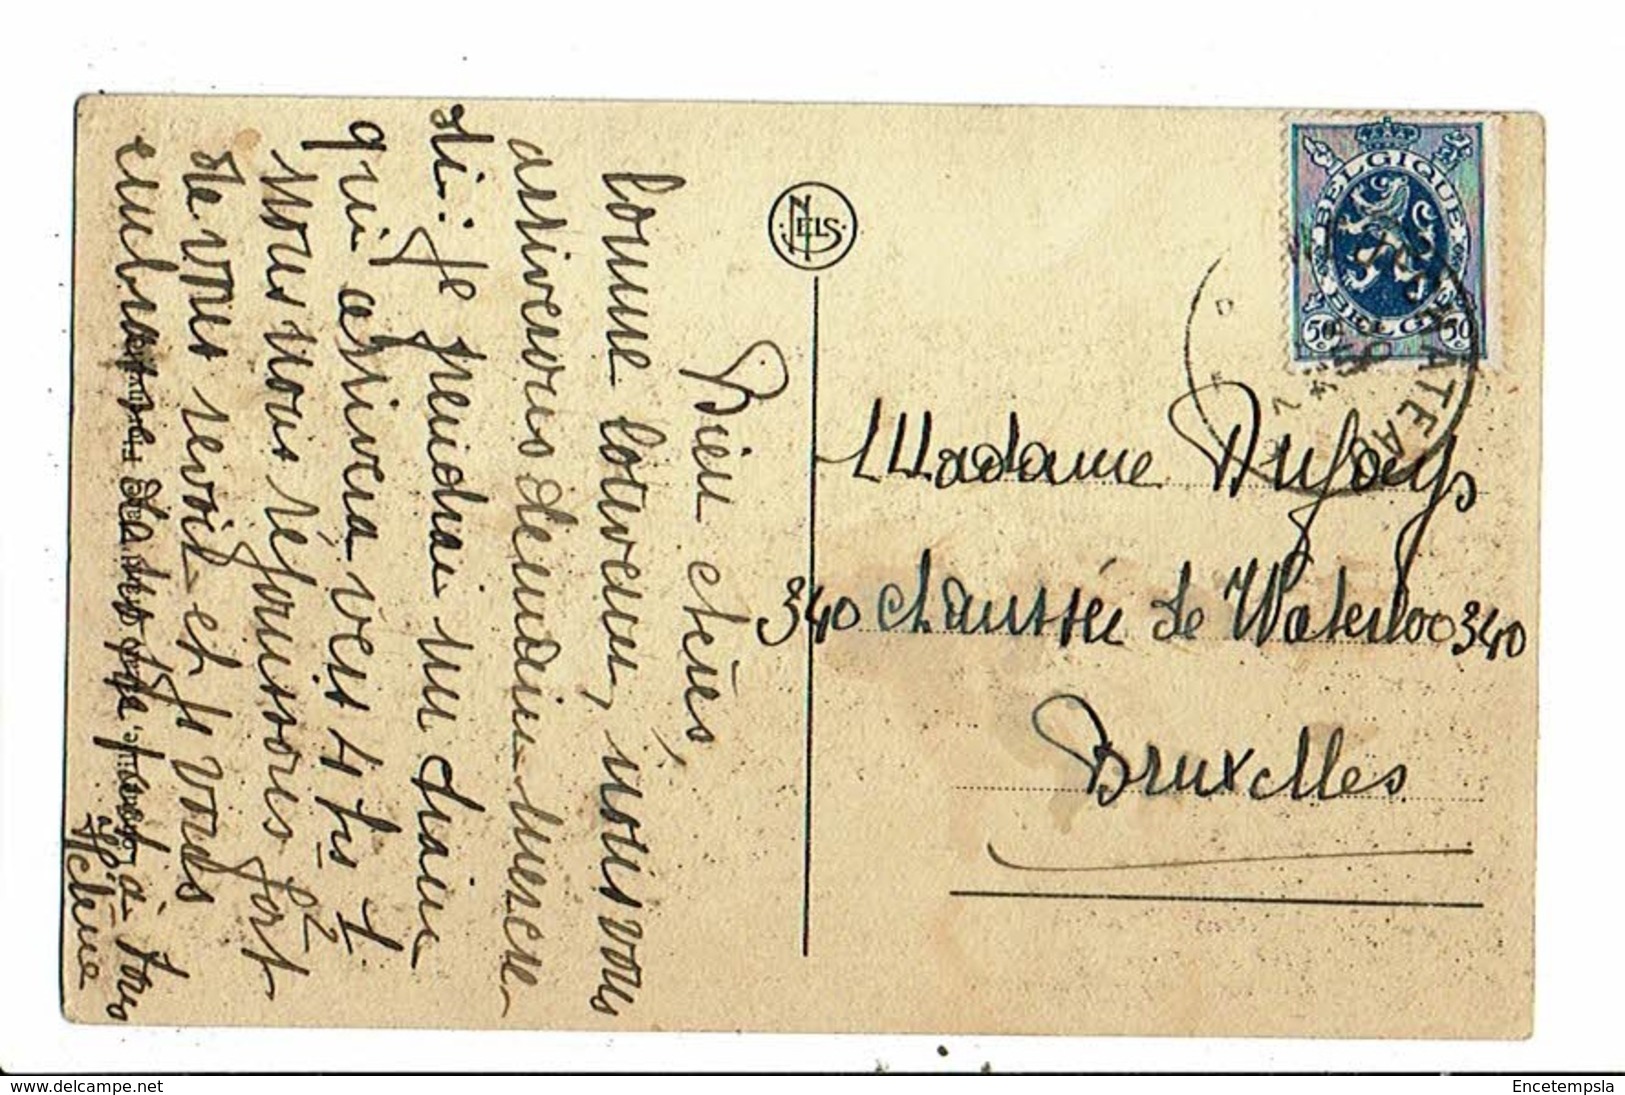 Bien chères,
Comme convenu, nous vous
arriverons demain mercre-
di. Je prendrai un train
qui arrivera vers 4 hrs 1/2.
Nous nous réjouissons fort
de vous revoir et je vous
embrasse de très fort à tous
Hélène
NELS
BELGIQUE
BELGIE
50 c
50 c
ATEAU
Madame Dufoys
340 Chaussée de Waterloo 340
Bruxelles
www.delcampe.net
Encetempsla